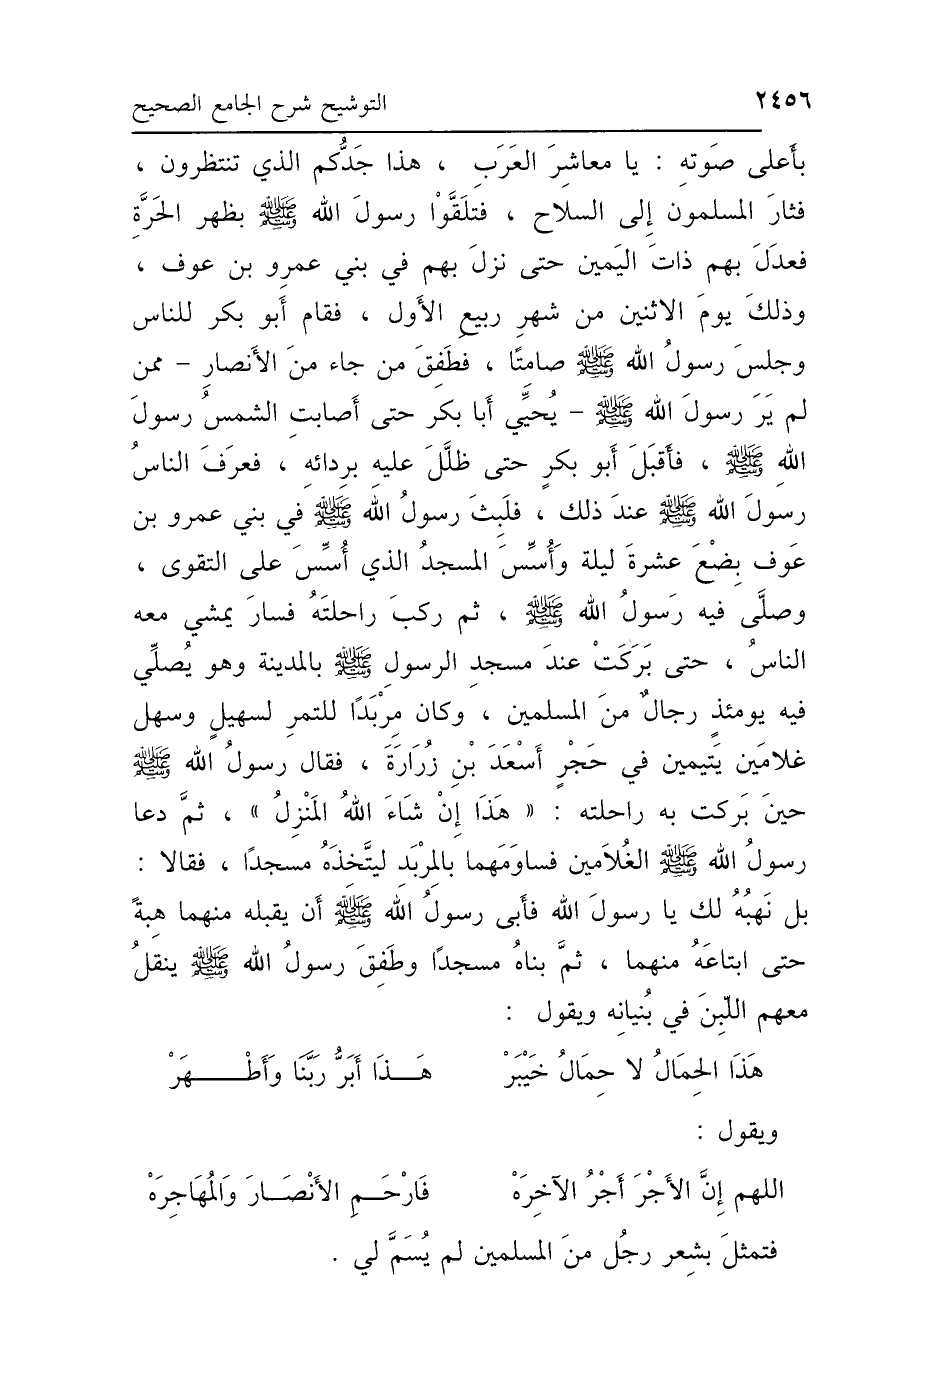 ٢٤٥٦ التوشيح شرح الجامع الصحيح
بأَعلى صَوته : يا معاشِرَ العَرَبِ ، هذا جَدُّكم الذي تنتظرون ،
فثارَ المسلمون إلى السلاح ، فتلَقَّوْا رسولَ الله ﷺ بظهر الحَرَّةِ
فعدَلَ بهم ذاتَ اليَمين حتى نزلَ بهم في بني عمرِو بن عوف ،
وذلكَ يومَ الاثنين من شهرِ ربيعِ الأَول ، فقام أَبو بكر للناس
وجلسَ رسولُ الله ﷺ صامتًا ، فطَفِقَ من جاء منَ الأَنصارِ – ممن
لم يَرَ رسولَ الله ﷺ – يُحيِّي أَبا بكر حتى أَصابتِ الشمسُ رسولَ
اللهِ ﷺ ، فأَقبَلَ أَبو بكرٍ حتى ظلَّلَ عليهِ بِردائهِ ، فعرَفَ الناسُ
رسولَ الله ﷺ عندَ ذلك ، فلَبِثَ رسولُ الله ﷺ في بني عمرو بن
عَوف بِضْعَ عشرةَ ليلة وأُسِّسَ المسجدُ الذي أُسِّسَ على التقوى ،
وصلَّى فيه رَسولُ الله ﷺ ، ثم ركبَ راحلتَهُ فسارَ يمشي معه
الناسُ ، حتى بَرَكَتْ عندَ مسجدِ الرسولِ ﷺ بالمدينة وهو يُصلِّي
فيه يومئذٍ رجالٌ منَ المسلمين ، وكان مِرْبَدًا للتمرِ لسهيلٍ وسهل
غلامَين يَتيمين في حَجْرِ أَسْعَدَ بْنِ زُرَارَةَ ، فقال رسولُ الله ﷺ
حينَ بَركت به راحلته : « هَذَا إِنْ شَاءَ اللهُ المَنْزِلُ » ، ثمَّ دعا
رسولُ الله ﷺ الغُلاَمين فساوَمَهما بالمِرْبَدِ ليتَّخِذَهُ مسجدًا ، فقالا :
بل نَهَبُهُ لك يا رسولَ الله فأَبى رسولُ الله ﷺ أَن يقبله منهما هِبةً
حتى ابتاعَهُ منهما ، ثمَّ بناهُ مسجدًا وطَفِقَ رسولُ الله ﷺ ينقلُ
معهم اللَّبِنَ في بُنيانه ويقول :
هَذَا الحِمَالُ لا حِمَالُ خَيْبَرْ هَـذَا أَبَرُّ رَبَّنَا وَأَطْـهَرْ
ويقول :
اللهم إِنَّ الأَجْرَ أَجْرُ الآخرَهْ فَارْحَـمِ الأَنْصَـارَ وَالمُهَاجِرَهْ
فتمثلَ بشِعر رجُل منَ المسلمين لم يُسَمَّ لي .